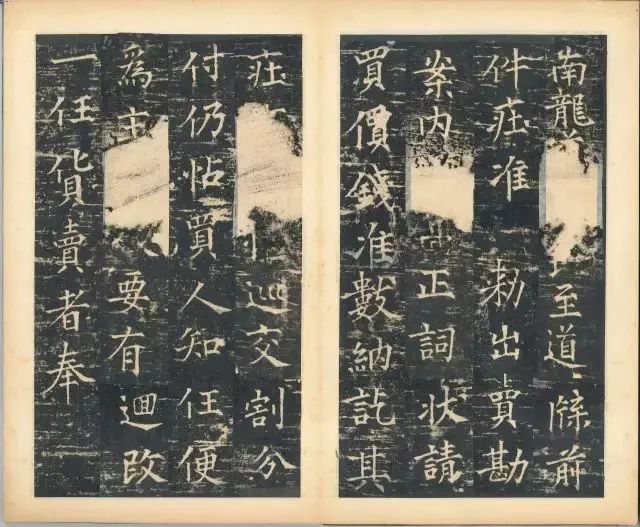 南龍至道牒前
件莊准勅出賣勘
案内正詞狀請
買價錢准數納訖其
莊巡交割分
付仍帖買人知任便
為主要有迴改
一任貨賣者奉